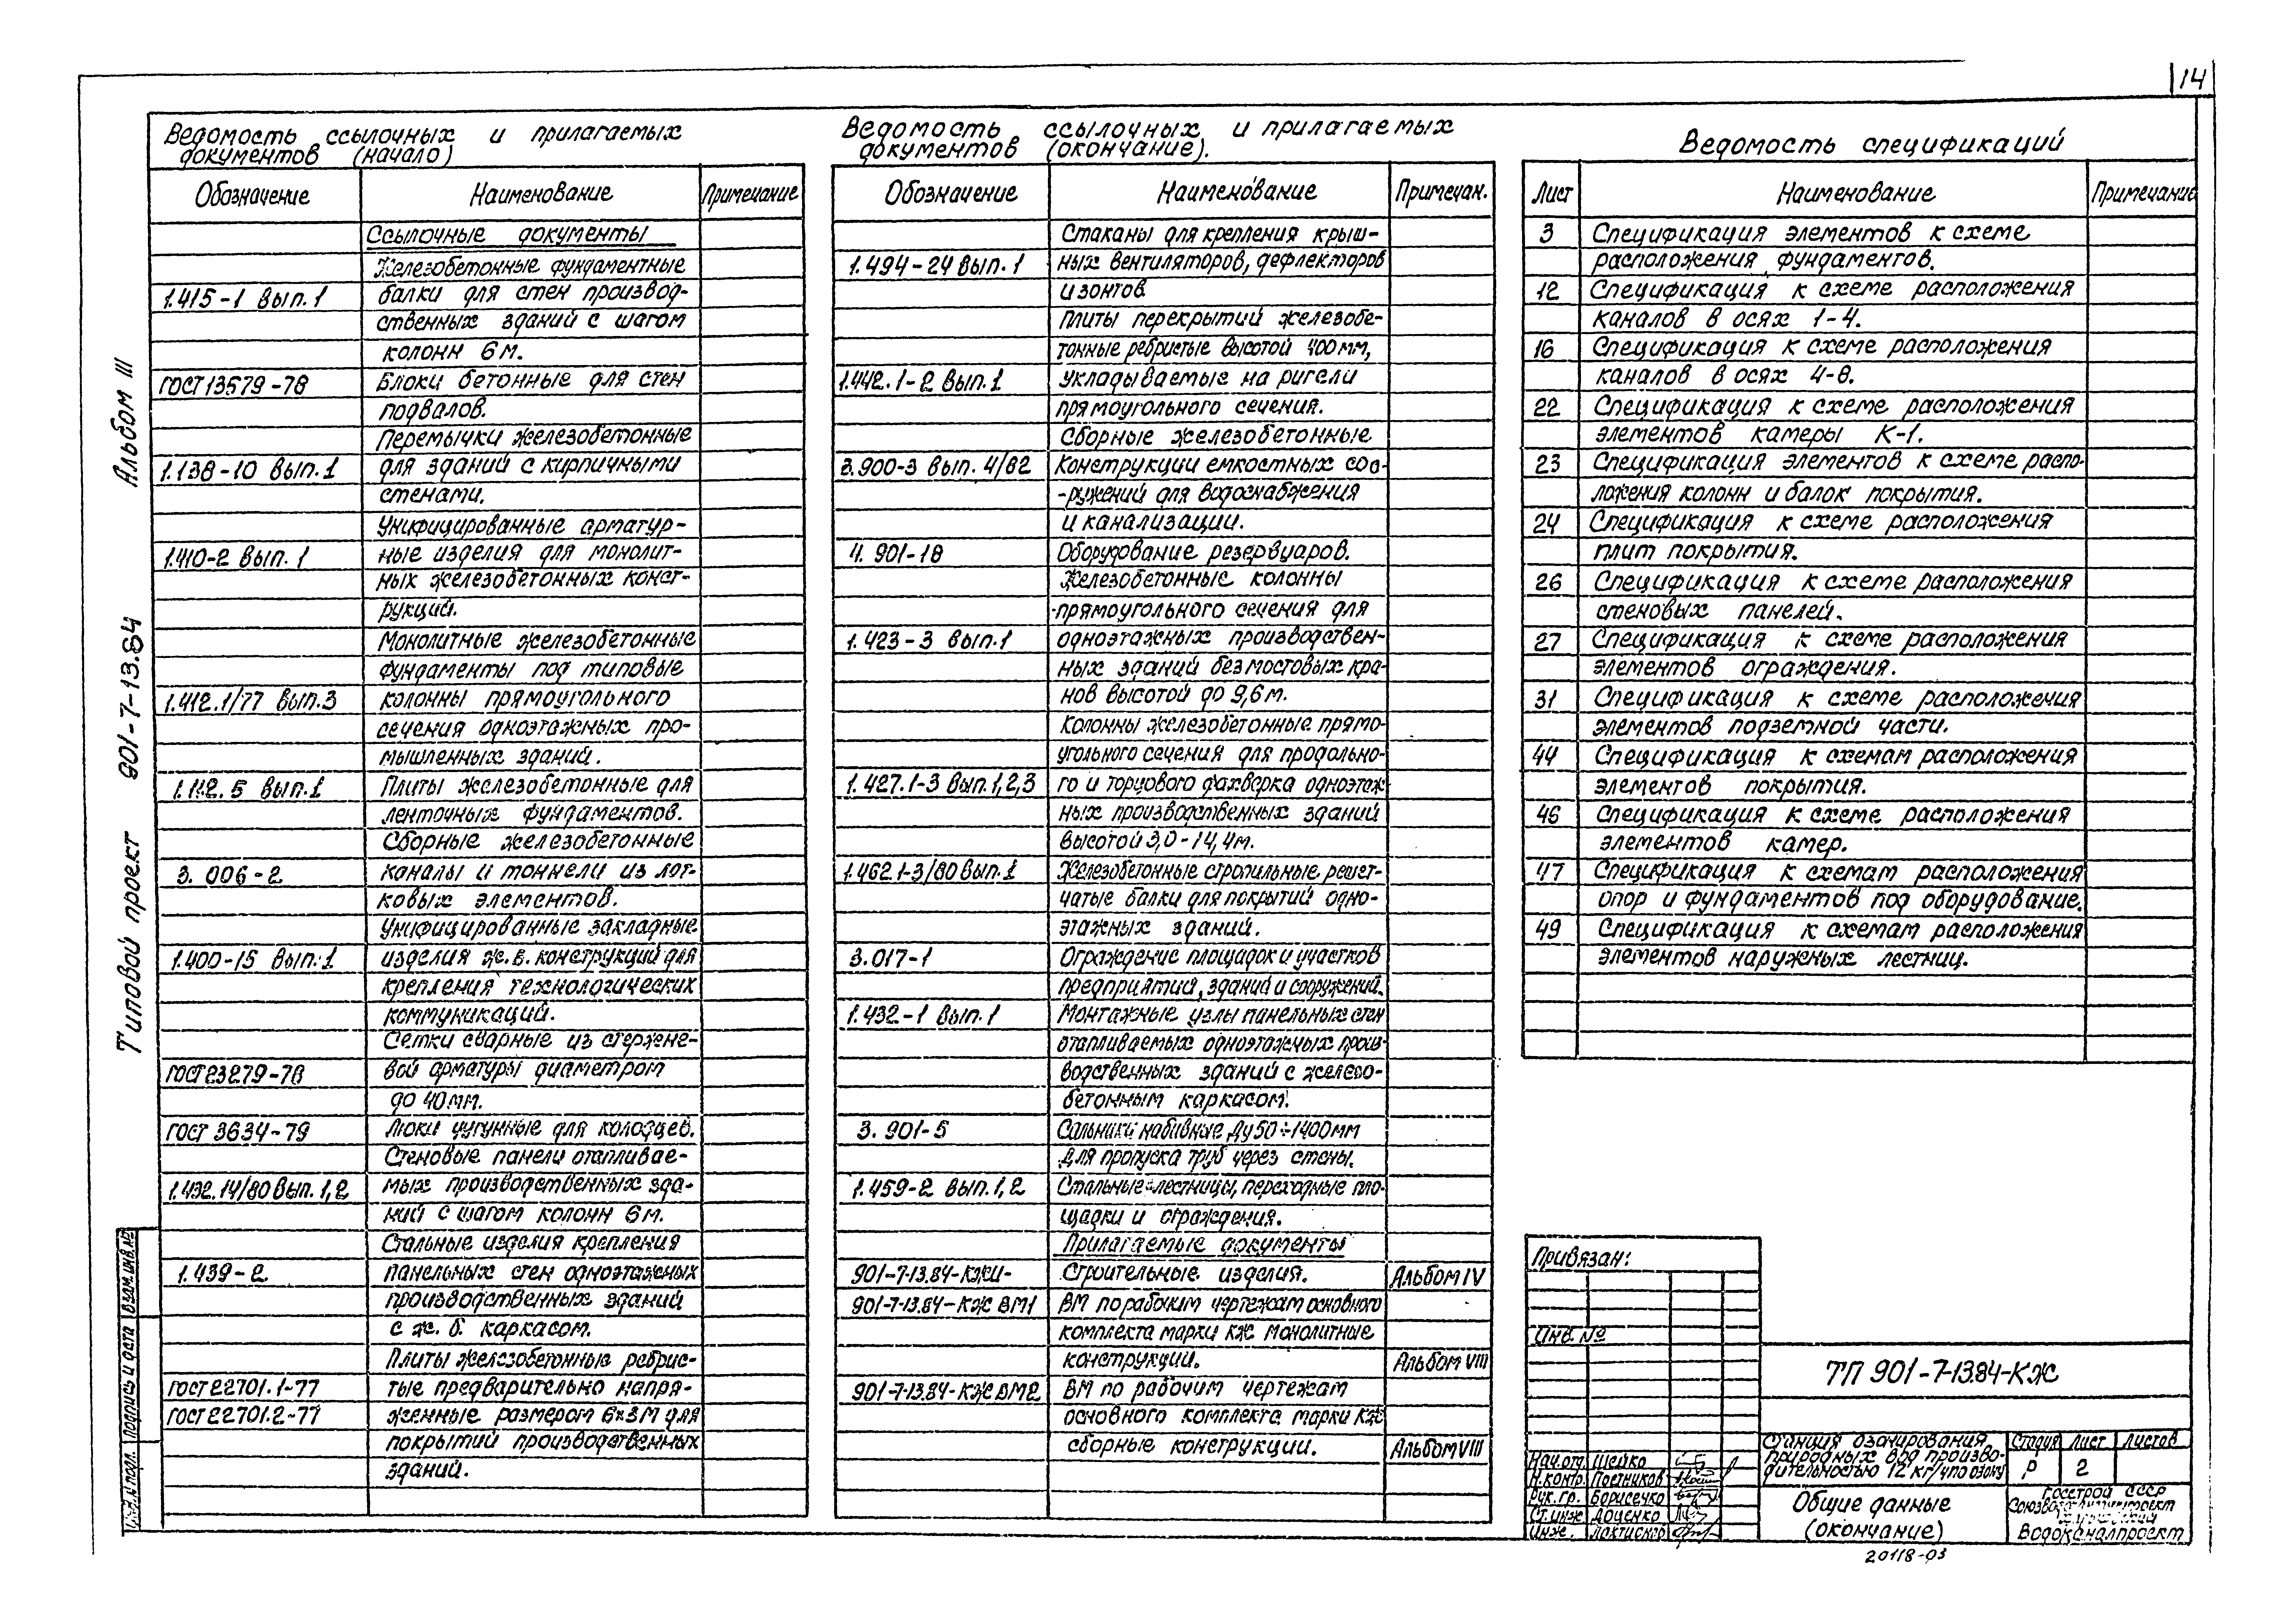 14
Ведомость ссылочных и прилагаемых
документов (начало)
Обозначение Наименование Примечание
Ссылочные документы
Железобетонные фундаментные
1.415-1 Вып.1 балки для стен производ-
ственных зданий с шагом
колонн 6м.
ГОСТ 13579-78 Блоки бетонные для стен
подвалов.
Перемычки железобетонные
1.138-10 Вып.1 для зданий с кирпичными
стенами.
Унифицированные арматур-
1.410-2 Вып.1 ные изделия для монолит-
ных железобетонных конст-
рукций.
Монолитные железобетонные
фундаменты под типовые
1.412.1/77 Вып.3 колонны прямоугольного
сечения одноэтажных про-
мышленных зданий.
1.112.5 Вып.1 Плиты железобетонные для
ленточных фундаментов.
Сборные железобетонные
3.006-2 каналы и тоннели из лот-
ковых элементов.
Унифицированные закладные
1.400-15 Вып.1 изделия ж.б. конструкций для
крепления технологических
коммуникаций.
Сетки сварные из стержне-
ГОСТ 23279-78 вой арматуры диаметром
до 40мм.
ГОСТ 3634-79 Люки чугунные для колодцев.
Стеновые панели отапливае-
1.432.14/80 Вып.1,2 мых производственных зда-
ний с шагом колонн 6м.
Стальные изделия крепления
1.439-2 панельных стен одноэтажных
производственных зданий
с ж.б. каркасом.
Плиты железобетонные ребрис-
ГОСТ 22701.1-77 тые предварительно напря-
ГОСТ 22701.2-77 женные размером 6×3м для
покрытий производственных
зданий.
Ведомость ссылочных и прилагаемых
документов (окончание).
Обозначение Наименование Примечан.
Стаканы для крепления крыш-
1.494-24 Вып.1 ных вентиляторов, дефлекторов
и зонтов
Плиты перекрытий железобе-
тонные ребристые высотой 400мм,
1.442.1-2 Вып.1 укладываемые на ригели
прямоугольного сечения.
Сборные железобетонные
3.900-3 Вып. 4/82 Конструкции емкостных соо-
-ружений для водоснабжения
и канализации.
4.901-18 Оборудование резервуаров.
Железобетонные колонны
прямоугольного сечения для
1.423-3 Вып.1 одноэтажных производствен-
ных зданий без мостовых кра-
нов высотой до 9,6м.
Колонны железобетонные прямо-
угольного сечения для продольно-
1.427.1-3 Вып.1,2,3 го и торцового фахверка одноэтаж-
ных производственных зданий
высотой 3,0-14,4м.
1.462.1-3/80 Вып.1 Железобетонные стропильные решет-
чатые балки для покрытий одно-
этажных зданий.
3.017-1 Ограждение площадок и участков
предприятий, зданий и сооружений.
1.432-1 Вып.1 Монтажные узлы панельных стен
отапливаемых одноэтажных произ-
водственных зданий с железо-
бетонным каркасом.
3.901-5 Сальники набивные Ду50÷1400мм
для пропуска труб через стены.
1.459-2 Вып.1,2 Стальные лестницы, переходные пло-
щадки и ограждения.
Прилагаемые документы
901-7-13.84-КЖИ- Строительные изделия. Альбом IV
901-7-13.84-КЖ ВМ1 ВМ по рабочим чертежам основного
комплекта марки КЖ Монолитные
конструкции. Альбом VIII
901-7-13.84-КЖ ВМ2 ВМ по рабочим чертежам
основного комплекта марки КЖ
сборные конструкции. Альбом VIII
Ведомость спецификаций
Лист Наименование Примечание
3 Спецификация элементов к схеме
расположения фундаментов.
12 Спецификация к схеме расположения
каналов в осях 1-4.
16 Спецификация к схеме расположения
каналов в осях 4-8.
22 Спецификация к схеме расположения
элементов камеры К-1.
23 Спецификация элементов к схеме распо-
ложения колонн и балок покрытия.
24 Спецификация к схеме расположения
плит покрытия.
26 Спецификация к схеме расположения
стеновых панелей.
27 Спецификация к схеме расположения
элементов ограждения.
31 Спецификация к схеме расположения
элементов подземной части.
44 Спецификация к схемам расположения
элементов покрытия.
46 Спецификация к схеме расположения
элементов камер.
47 Спецификация к схемам расположения
опор и фундаментов под оборудование.
49 Спецификация к схемам расположения
элементов наружных лестниц.
Привязан:
Инв. №
ТП 901-7-13.84-КЖ
Нач.отд. Шейко
Н.контр. Постников
Рук.гр. Борисенко
Ст.инж. Доценко
Инж.
Станция озонирования
природных вод произво-
дительностью 12 кг/ч по озону
Стадия Лист Листов
Р 2
Общие данные
(окончание)
Госстрой СССР
Водоканалпроект
20118-03
Типовой проект 901-7-13.84 Альбом III
Инв.№ подл. Подпись и дата Взам.инв.№